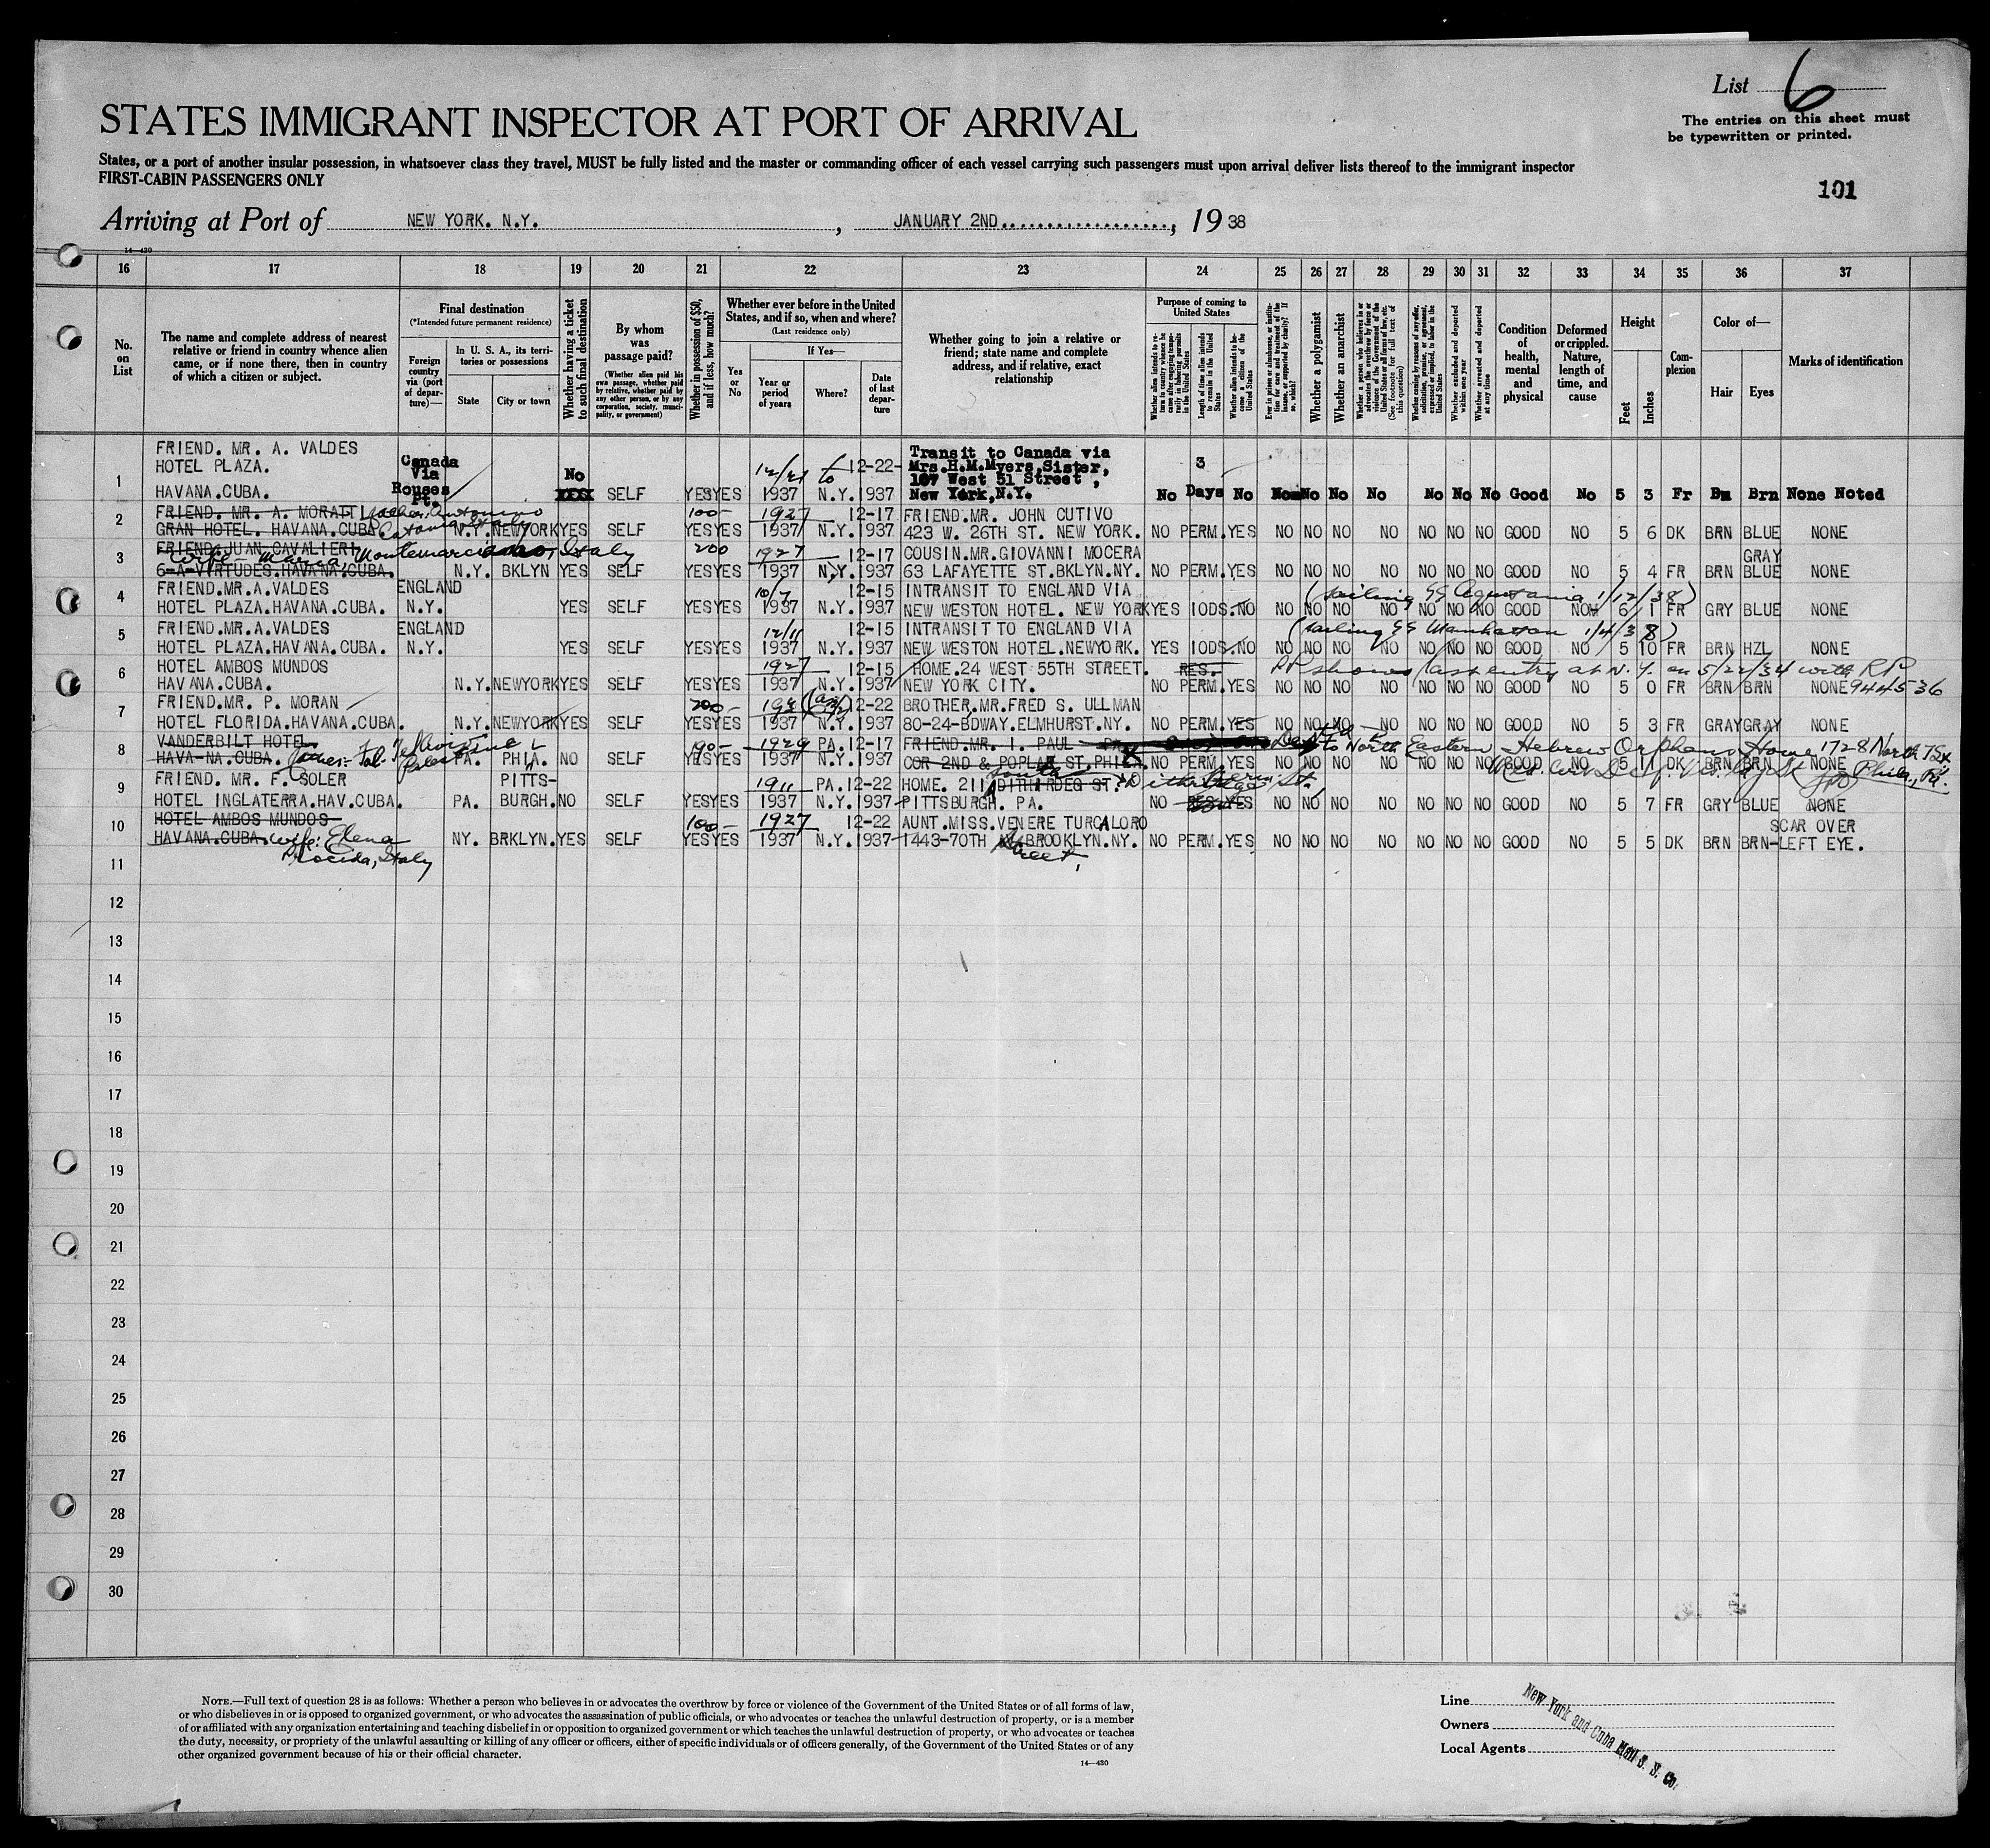 List 6
The entries on this sheet must
be typewritten or printed.
STATES IMMIGRANT INSPECTOR AT PORT OF ARRIVAL
States, or a port of another insular possession, in whatsoever class they travel, MUST be fully listed and the master or commanding officer of each vessel carrying such passengers must upon arrival deliver lists thereof to the immigrant inspector
FIRST-CABIN PASSENGERS ONLY
101
Arriving at Port of NEW YORK. N.Y. , JANUARY 2ND , 1938
14—430
16 17 18 19 20 21 22 23 24 25 26 27 28 29 30 31 32 33 34 35 36 37
No. on List
The name and complete address of nearest relative or friend in country whence alien came, or if none there, then in country of which a citizen or subject.
Final destination
(*Intended future permanent residence)
Foreign country via (port of departure)—
In U. S. A., its territories or possessions
State
City or town
Whether having a ticket to such final destination
By whom was passage paid?
(Whether alien paid his own passage, whether paid by relative, whether paid by any other person, or by any corporation, society, municipality, or government)
Whether in possession of $50, and if less, how much?
Whether ever before in the United States, and if so, when and where?
(Last residence only)
Yes or No
If Yes—
Year or period of years
Where?
Date of last departure
Whether going to join a relative or friend; state name and complete address, and if relative, exact relationship
Purpose of coming to United States
Length of time alien intends to remain in the United States
Whether alien intends to become a citizen of the United States
Whether a polygamist
Whether an anarchist
(See footnote for full text of this question)
Whether excluded and deported within one year
Whether arrested and deported at any time
Condition of health, mental and physical
Deformed or crippled. Nature, length of time, and cause
Height
Feet
Inches
Complexion
Color of—
Hair
Eyes
Marks of identification
FRIEND. MR. A. VALDES Canada Transit to Canada via
HOTEL PLAZA. Via No 12/21 to 12-22- Mrs.H.M.Myers,Sister, 3
1 Rouses 107 West 51 Street,
HAVANA.CUBA. Pt. XXXX SELF YES YES 1937 N.Y. 1937 New York,N.Y. No Days No No No No No No No Good No 5 3 Fr Bn Brn None Noted
2 FRIEND. MR. A. MORATTI Antonino 100- 1927 12-17 FRIEND.MR. JOHN CUTIVO
GRAN HOTEL. HAVANA.CUBA Catania Italy N.Y. NEWYORK YES SELF YES YES 1937 N.Y. 1937 423 W. 26TH ST. NEW YORK. NO PERM. YES NO NO NO NO NO NO NO GOOD NO 5 6 DK BRN BLUE NONE
3 FRIEND.JUAN CAVALIERI wife - Maria, Italy 200 1927 12-17 COUSIN.MR.GIOVANNI MOCERA GRAY
6-A-VIRTUDES.HAVANA.CUBA. N.Y. BKLYN YES SELF YES YES 1937 N.Y. 1937 63 LAFAYETTE ST.BKLYN.NY. NO PERM. YES NO NO NO NO NO NO NO GOOD NO 5 4 FR BRN BLUE NONE
4 FRIEND.MR.A.VALDES ENGLAND 10/7 12-15 INTRANSIT TO ENGLAND VIA (sailing SS Aquitania 1/12/38)
HOTEL PLAZA.HAVANA.CUBA. N.Y. YES SELF YES YES 1937 N.Y. 1937 NEW WESTON HOTEL. NEW YORK YES 10DS. NO NO NO NO NO NO NO NO GOOD NO 6 1 FR GRY BLUE NONE
5 FRIEND.MR.A.VALDES ENGLAND 12/11 12-15 INTRANSIT TO ENGLAND VIA (sailing SS Manhattan 1/4/38)
HOTEL PLAZA.HAVANA.CUBA. N.Y. YES SELF YES YES 1937 N.Y. 1937 NEW WESTON HOTEL.NEWYORK. YES 10DS. NO NO NO NO NO NO NO NO GOOD NO 5 10 FR BRN HZL NONE
6 HOTEL AMBOS MUNDOS 1927 12-15 HOME.24 WEST 55TH STREET. RES. PP shows last entry at N.Y. on 5/22/34 with RP
HAVANA.CUBA. N.Y. NEWYORK YES SELF YES YES 1937 N.Y. 1937 NEW YORK CITY. NO PERM. YES NO NO NO NO NO NO NO GOOD NO 5 0 FR BRN BRN NONE 944536
7 FRIEND.MR. P. MORAN 200- 12-22 BROTHER.MR.FRED S. ULLMAN
HOTEL FLORIDA.HAVANA.CUBA. N.Y. NEWYORK YES SELF YES YES 1937 N.Y. 1937 80-24-BDWAY.ELMHURST.NY. NO PERM. YES NO NO NO NO NO NO NO GOOD NO 5 3 FR GRAY GRAY NONE
8 VANDERBILT HOTEL 90- 1929 PA. 12-17 FRIEND.MR. I. PAUL to North Eastern Hebrew Orphans Home 1728 North 7 St
HAVA-NA.CUBA. PA. PHILA. NO SELF YES YES 1937 N.Y. 1937 COR 2ND & POPLAR ST.PHILA. NO PERM. YES NO NO NO NO NO NO NO GOOD NO 5 11 DK BRN BRN NONE Phila, Pa.
9 FRIEND. MR. F. SOLER PITTS- 1911 PA. 12-22 HOME. 211 South Dithridge St.
HOTEL INGLATERRA.HAV.CUBA. PA. BURGH. NO SELF YES YES 1937 N.Y. 1937 PITTSBURGH. PA. NO YES NO NO NO NO NO NO NO GOOD NO 5 7 FR GRY BLUE NONE
10 HOTEL AMBOS MUNDOS 100- 1927 12-22 AUNT.MISS.VENERE TURCALORO SCAR OVER
HAVANA.CUBA. wife: Elena NY. BRKLYN. YES SELF YES YES 1937 N.Y. 1937 1443-70TH BROOKLYN.NY. NO PERM. YES NO NO NO NO NO NO NO GOOD NO 5 5 DK BRN BRN- LEFT EYE.
Procida, Italy Street,
11
12
13
14
15
16
17
18
19
20
21
22
23
24
25
26
27
28
29
30
NOTE.—Full text of question 28 is as follows: Whether a person who believes in or advocates the overthrow by force or violence of the Government of the United States or of all forms of law,
or who disbelieves in or is opposed to organized government, or who advocates the assassination of public officials, or who advocates or teaches the unlawful destruction of property, or is a member
of or affiliated with any organization entertaining and teaching disbelief in or opposition to organized government or which teaches the unlawful destruction of property, or who advocates or teaches
the duty, necessity, or propriety of the unlawful assaulting or killing of any officer or officers, either of specific individuals or of officers generally, of the Government of the United States or of any
other organized government because of his or their official character.
14—430
Line
Owners
Local Agents
New York and Cuba Mail S. S. Co.